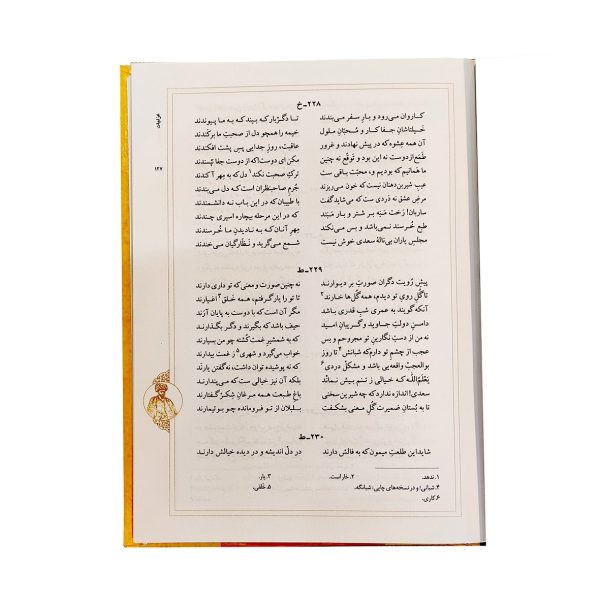 غزلیات
۱۲۷
۲۲۸ - خ
کاروان می‌رود و بار سفر می‌بندند تا دگربار که بیند که به ما پیوندند
خیلتاشان جفاکار و محبّان ملول خیمه را همچو دل از صحبت ما برکندند
آن همه عشوه که در پیش نهادند و غرور عاقبت، روز جدایی پس پشت افکندند
طمع از دوست نه این بود و توقّع نه چنین مکن ای دوست که از دوست جفا نپسندند
ما همانیم که بودیم و، محبّت باقی ست ترک صحبت نکند دل که به مهر آکندند
عیب شیرین‌دهنان نیست که خون می‌ریزند جُرم صاحبنظران است که دل می‌بندند
مرض عشق نه دردی ست که می‌شاید گفت با طبیبان که در این باب نه دانشمندند
ساربان! رخت منه بر شتر و بار مبند که در این مرحله بیچاره اسیری چندند
طبع خُرسند نمی‌باشد و بس می‌نکند مهر آنان که به نادیدن ما خُرسندند
مجلس یاران بی‌نالهٔ سعدی خوش نیست شمع می‌گرید و نظّارگیان می‌خندند
۲۲۹ - ط
پیش رُویت دگران صورت بر دیوارند نه چنین صورت و معنی که تو داری دارند
تا گل روی تو دیدم، همه گل‌ها خارند۲ تا تو را یار گرفتم، همه خلق۳ اغیارند
آنکه گویند به عمری شب قدری باشد مگر آن است که با دوست به پایان آرند
دامن دولت جاوید و گریبان امید حیف باشد که بگیرند و دگر بگذارند
نه من از دست نگارین تو مجروحم و بس که به شمشیر غمت کُشته چو من بسیارند
عجب از چشم تو دارم که شبانش۴ تا روز خواب می‌گیرد و شهری۵ ز غمت بیدارند
بوالعجب واقعه‌یی باشد و مشکل دردی۶ که نه پوشیده توان داشت، نه گفتن یارند
یَعلَمُ‌الله که خیالی ز تنم بیش نماند بلکه آن نیز خیالی ست که می‌پندارند
سعدی! اندازه ندارد که چه شیرین سخنی باغ طبعت همه مرغان شکرگفتارند
تا به بُستان ضمیرت گل معنی بشکفت بلبلان از تو فرومانده چو بوتیمارند
۲۳۰ - ط
شاید این طلعت میمون که به فالش دارند در دل اندیشه و در دیده خیالش دارند
۱. ندهد. ۲. خار است. ۳. یار.
۴. شبانی؛ و در نسخه‌های چاپی: شبانگه. ۵. خلقی.
۶. کاری.